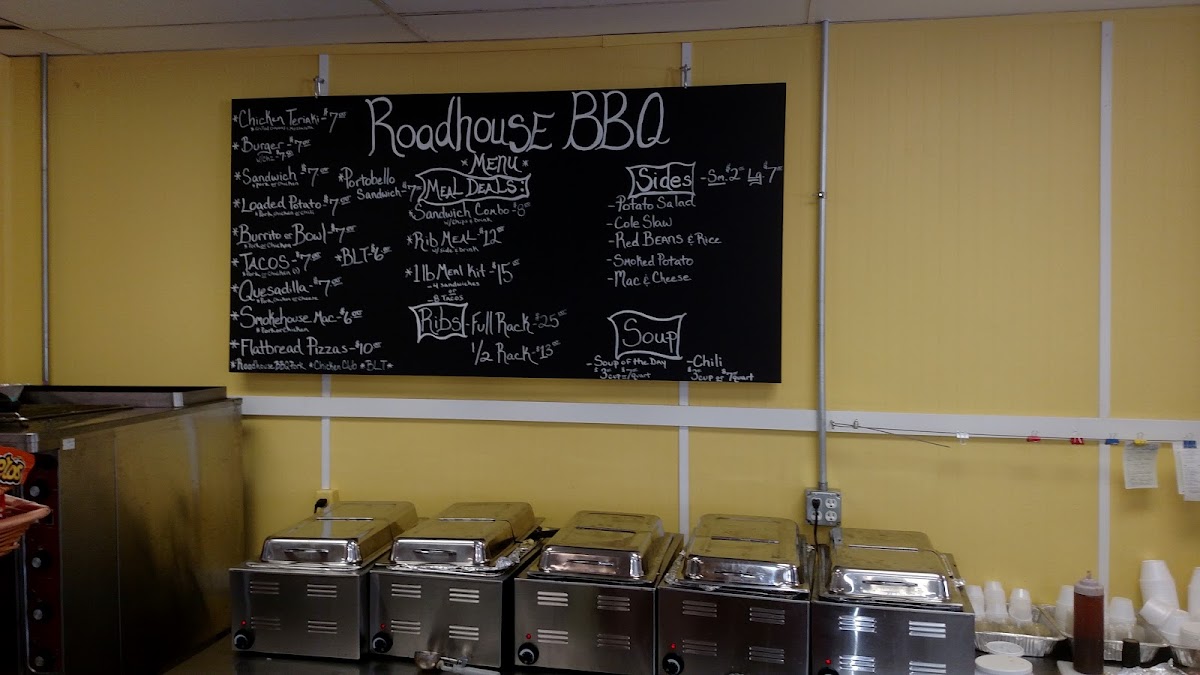 Roadhouse BBQ
*Menu*
*Chicken Teriaki-$7.00
*Burger-$7.00
*Sandwich-$7.00
*Pork or Chicken
*Loaded Potato-$7.00
*Pork, Chicken or Chili
*Burrito or Bowl-$7.00
*Pork or Chicken
*Tacos-$7.00
*Pork or Chicken (3)
*Quesadilla-$7.00
*Pork, Chicken or Cheese
*Smokehouse Mac-$6.00
*Pork or Chicken
*Flatbread Pizzas-$10.00
*Roadhouse BBQ Pork *Chicken Club *BLT*
*Portobello
Sandwich-$7
*BLT-$6.00
Meal Deals:
*Sandwich Combo-$8.00
w/Chips & Drink
*Rib Meal-$12.00
w/Side & Drink
*1 lb Meal Kit-$15.00
-4 Sandwiches
or
-8 Tacos
Ribs -Full Rack-$25.00
1/2 Rack-$13.00
Sides -Sm.$2.00 Lg.$7.00
-Potato Salad
-Cole Slaw
-Red Beans & Rice
-Smoked Potato
-Mac & Cheese
Soup
-Soup of the Day
$3 cup $7/quart
-Chili
$3 cup or $7 quart